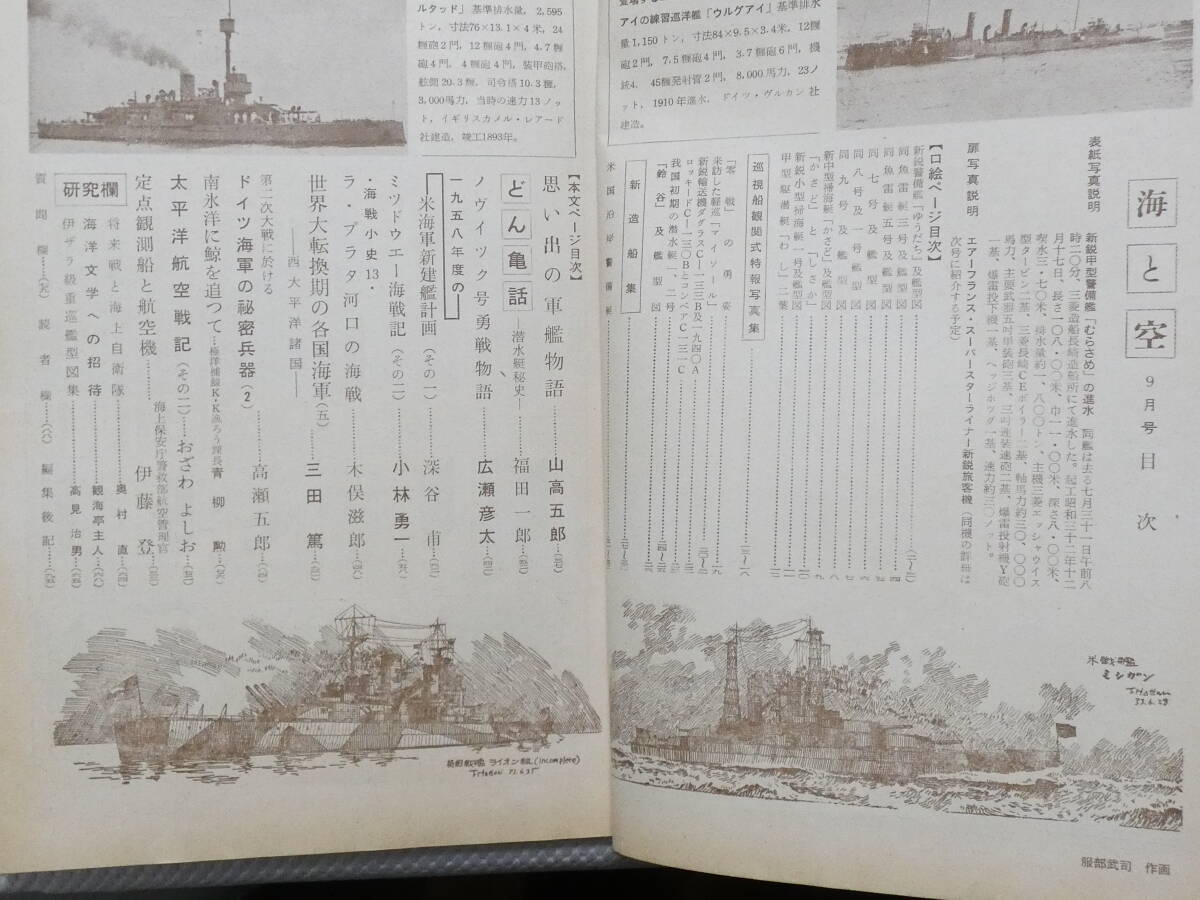 登場する
アイの練習巡洋艦『ウルグアイ』基準排水
量1,150トン，寸法84×9.5×3.4米，12糎
砲2門，7.5糎砲4門，3.7糎砲6門，機
銃4，45糎発射管2門，8,000馬力，23ノ
ット，1910年進水，ドイツ・ヴルカン社
建造。
ルタッド』基準排水量，2,595
トン，寸法76×13.1×4米，24
糎砲2門，12糎砲4門，4.7糎
砲4門，4糎砲4門，装甲砲塔，
舷側20.3糎，司令塔10.3糎，
3,000馬力，当時の速力13ノッ
ト，イギリスカメル・レアード
社建造，竣工1893年。
海と空
9月号目次
表紙写真説明
新鋭甲型警備艦「むらさめ」の進水 同艦は去る七月三十一日午前八
時二〇分、三菱造船長崎造船所にて進水した。起工昭和三十二年十二
月十七日、長さ一〇八・〇〇米、巾一一・〇〇米、深さ八・〇〇米、
喫水三・七〇米、排水量約一、八〇〇トン、主機三菱エッシャウイス
型タービン二基、三菱長崎CEボイラー二基、軸馬力約三〇、〇〇〇
馬力、主要武器五吋単装砲三基、三吋連装速砲二基、爆雷投射機Y砲
一基、爆雷投下機一基、ヘッジホッグ一基、速力約三〇ノット。
扉写真説明
エアーフランス・スーパースターライナー新鋭旅客機（同機の詳細は
次号に紹介する予定）
【口絵ページ目次】
新鋭警備艇「ゆうだち」及艦型図
同魚雷艇三号及艦型図
同魚雷艇五号艦型図
同七号及艦型図
同八号及一号艦型図
同九号及艦型図
新中型掃海艇「かさど」及艦型図
「かさど」と「しさか」
新鋭小型掃海艇一号及艦型図
甲型駆潜艇「わし」二葉
巡視船観閲式特報写真集
「零戦」の勇姿
来訪した軽巡「アイソール」
新鋭輸送機ダグラスC―一三三B及一九四〇A
ロッキードC―一三〇BとコンベアC―一三一C
我国初期の潜水艇一、二号
「鈴谷」及艦型図
新造船集
米国沿岸警備艇
【本文ページ目次】
思い出の軍艦物語……山高五郎
どん亀話―潜水艇秘史―……福田一郎
ノヴイツク号勇戦物語……広瀬彦太
一九五八年度の
米海軍新建艦計画（その一）……深谷甫
ミツドウエー海戦記（その二）……小林勇一
・海戦小史13・
ラ・プラタ河口の海戦……木俣滋郎
世界大転換期の各国海軍（五）……三田篤
―西太平洋諸国―
第二次大戦に於ける
ドイツ海軍の秘密兵器（2）……高瀬五郎
南氷洋に鯨を追つて―極洋捕鯨K・K漁ろう課長 青柳勲
太平洋航空戦記（その二）……おざわよしお
定点観測船と航空機……海上保安庁警救部航空管理官 伊藤登
研究欄
将来戦と海上自衛隊……奥村直
海洋文学への招待……観海亭主人
伊ザラ級重巡艦型図集……高見治男
質問欄……読者欄……編集後記
米戦艦
ミシガン
T.Hattori
32.6.28
英国戦艦 ライオン級 (incomplete)
T.Hattori 32.6.25
服部武司 作画